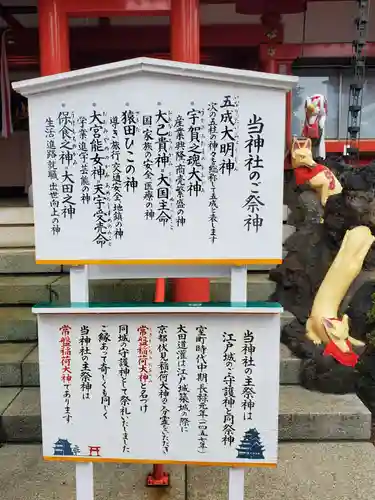 当神社のご祭神
五成大明神
次の五社の神々を総称して五成と表します
宇賀之魂大神
産業興隆・商売繁盛の神
大己貴神・大国主命
国家の安全・医療の神
猿田ひこの神
導き旅行・交通安全・地鎮の神
大宮能女神・天宇受売命
学業進学・芸能の神
保食之神・大田之神
生活進路・就職・出世向上の神
当神社の主祭神は
江戸城の守護神と同祭神
室町時代中期長禄元年(一四五七年)
太田道灌は江戸城築城の際に
京都の伏見稲荷大神の分霊をいただき
常盤稲荷大神と名づけ
同城の守護神として祭礼いたしました
当神社の主祭神は
ご縁あってくしくも同じく
常盤稲荷大神であります